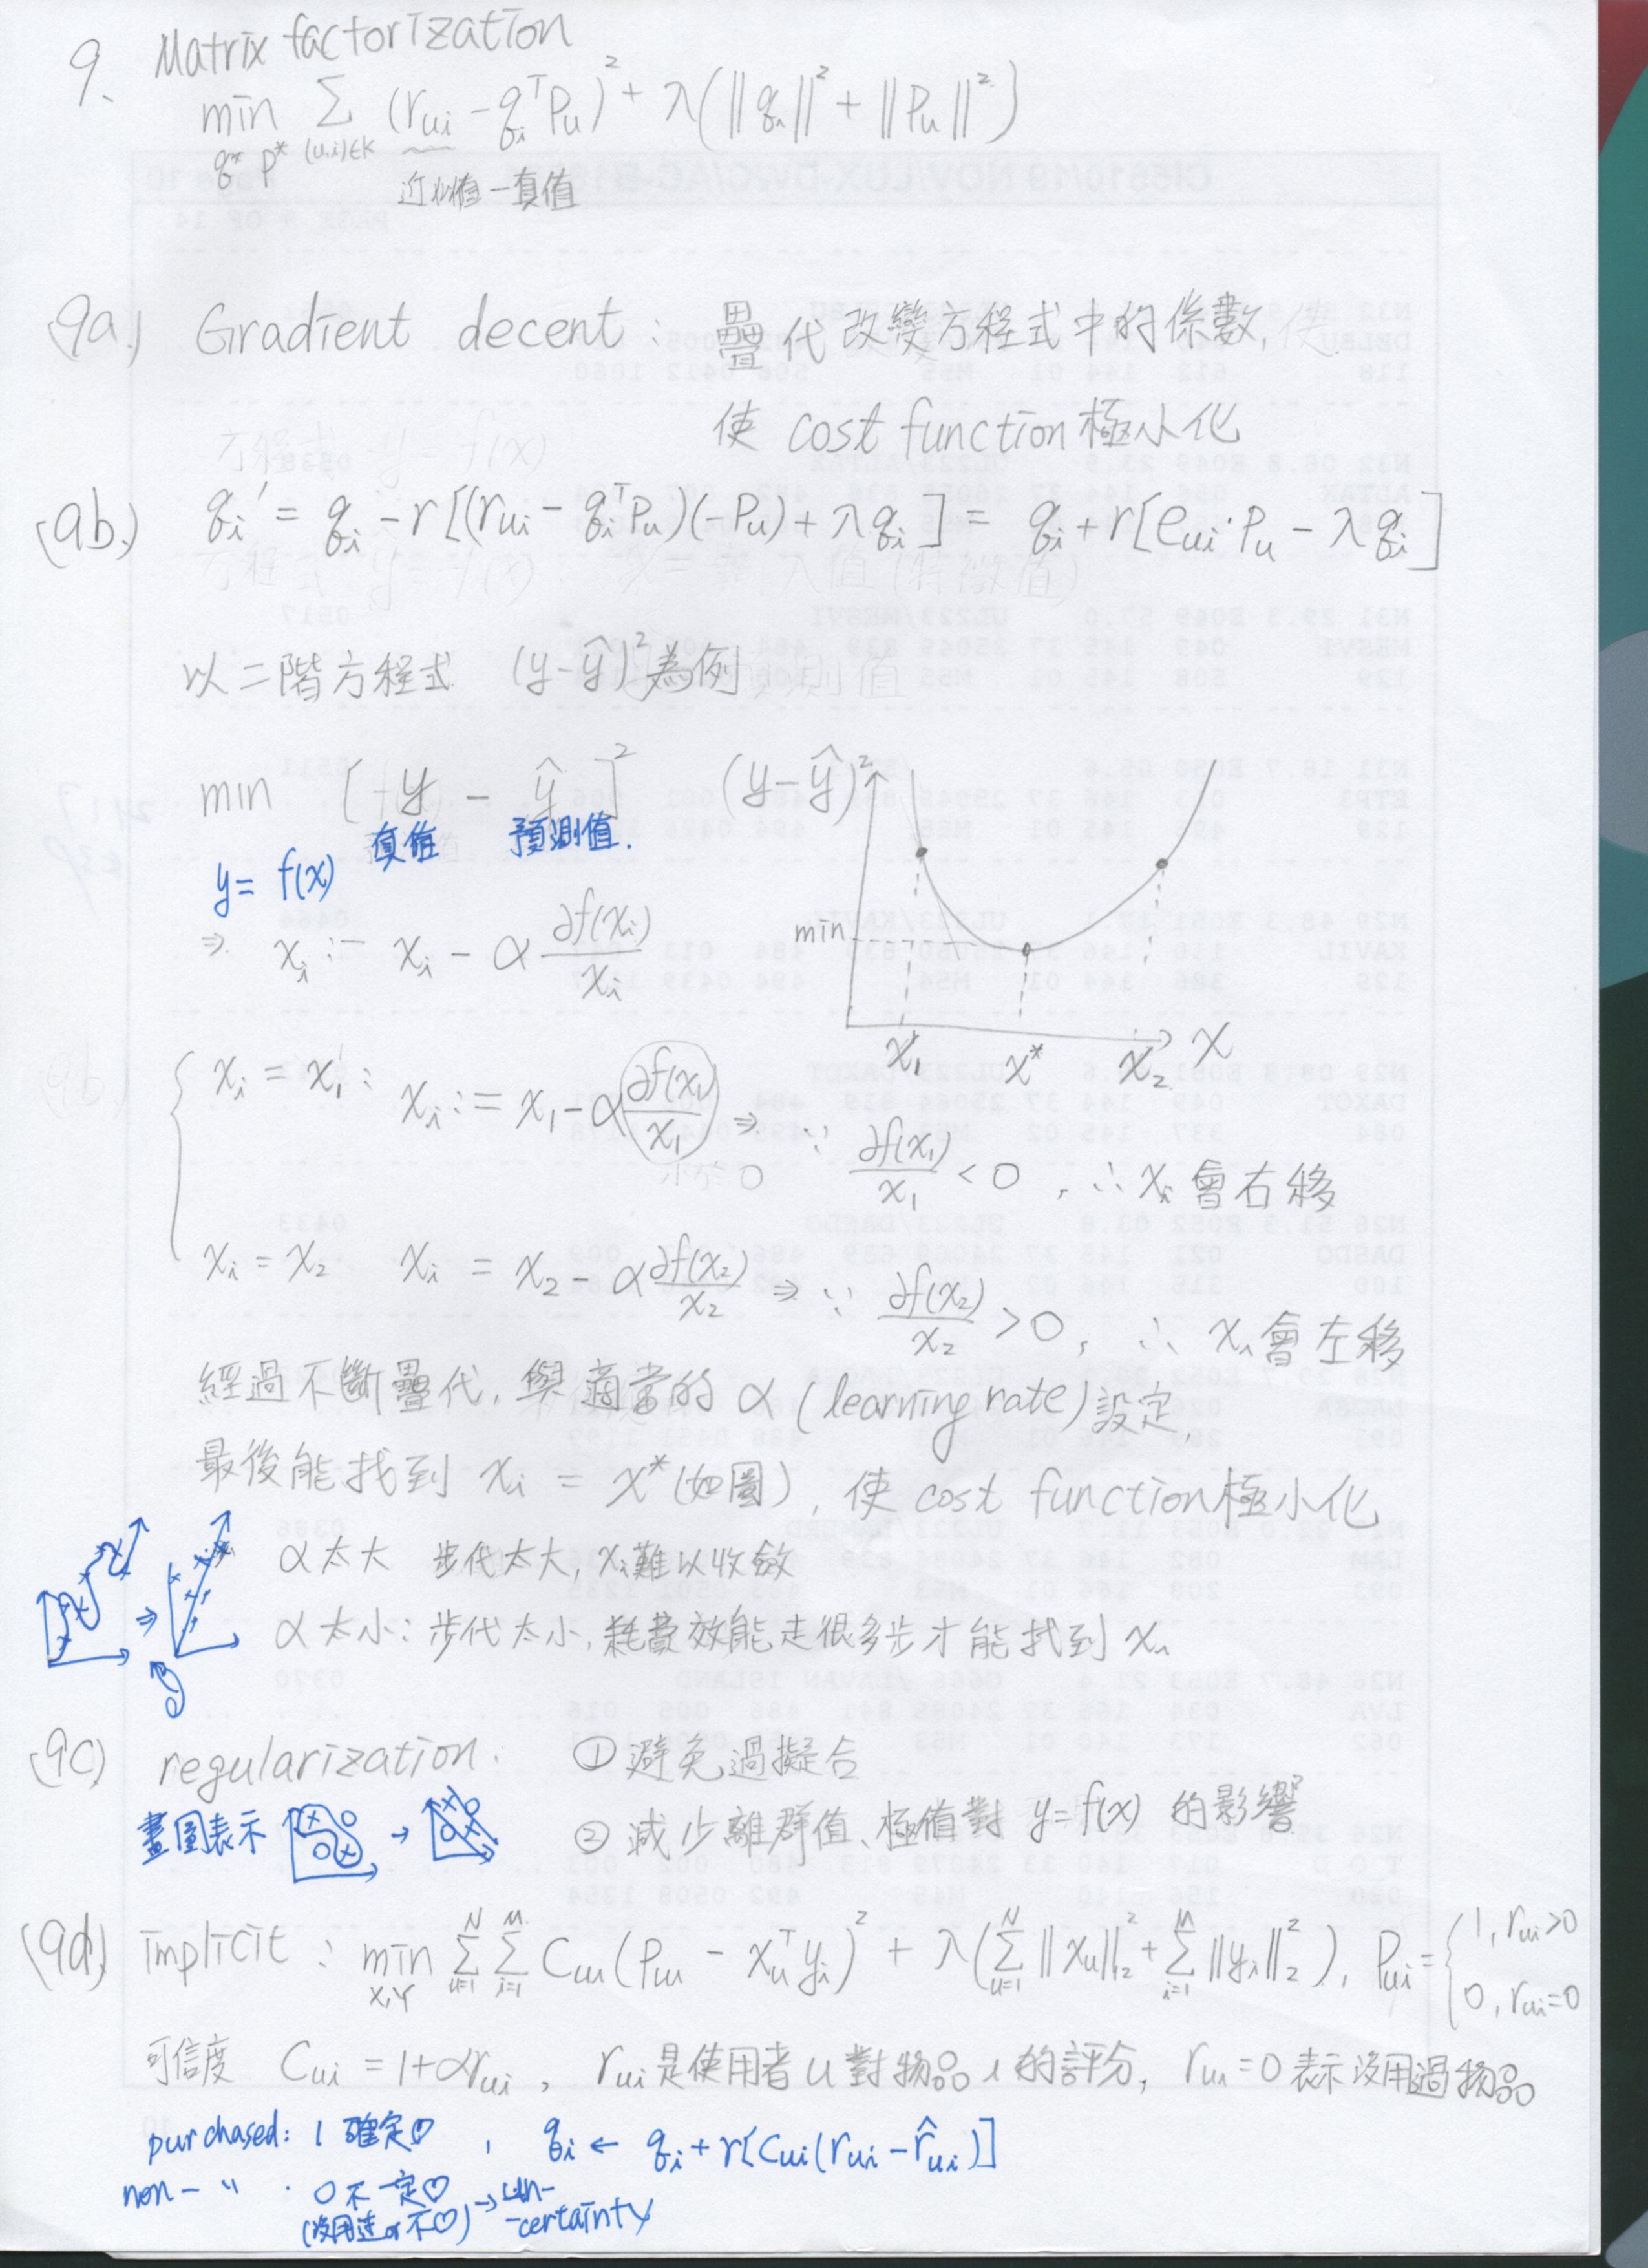 9. Matrix factorization
min Σ (rui - qiᵀPu)² + λ(||qi||² + ||Pu||²)
q* p* (u,i)∈K
近似值 - 真值
(9a.) Gradient decent : 疊代改變方程式中的係數,
使 cost function 極小化
(9b.) qi' = qi - r[(rui - qiᵀPu)(-Pu) + λqi] = qi + r[eui·Pu - λqi]
以二階方程式 (y-ŷ)² 為例
min [ y - ŷ ]²
真值 預測值.
y = f(x)
⇒ xi := xi - α ∂f(xi)/xi
(y-ŷ)²
min
x1 x* x2 x
xi = x1 : xi := x1 - α ∂f(x1)/x1 ⇒ ∵ ∂f(x1)/x1 < 0 , ∴ xi 會右移
xi = x2 xi = x2 - α ∂f(x2)/x2 ⇒ ∵ ∂f(x2)/x2 > 0, ∴ xi 會左移
經過不斷疊代, 與適當的 α (learning rate) 設定,
最後能找到 xi = x* (如圖), 使 cost function 極小化
α 太大 步代太大, xi 難以收斂
α 太小: 步代太小, 耗費效能走很多步才能找到 xi
(9c) regularization. ① 避免過擬合
畫圖表示 → ② 減少離群值、極值對 y=f(x) 的影響
(9d) implicit : min Σ Σ Cui(Pui - xuᵀyi)² + λ(Σ||xu||₂² + Σ||yi||₂²), Pui = { 1, rui>0
x,y u=1 i=1 u=1 i=1 0, rui=0
可信度 Cui = 1+αrui , rui 是使用者 u 對物品 i 的評分, rui = 0 表示沒用過物品
purchased: 1 確定♡ , qi ← qi + r[Cui(rui - r̂ui)]
non- 〃 . 0 不一定♡
(沒用過 or 不♡) → un-
-certainty